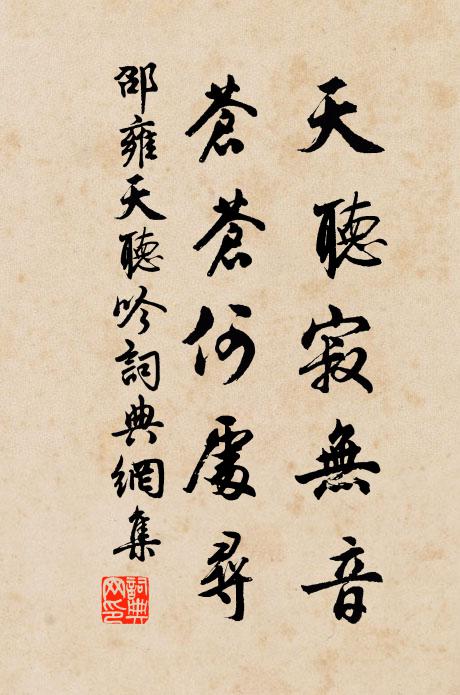 天聽寂無音
蒼蒼何處尋
邵雍天聽吟詞典網集
詞典
网印